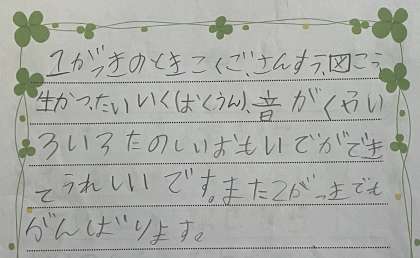 1がっきのときこくご、さんすう、図こう
生かつ、たいいく(ばくうん)、音がくやい
ろいろたのしいおもいでができ
てうれしいです。また2がっきでも
がんばります。